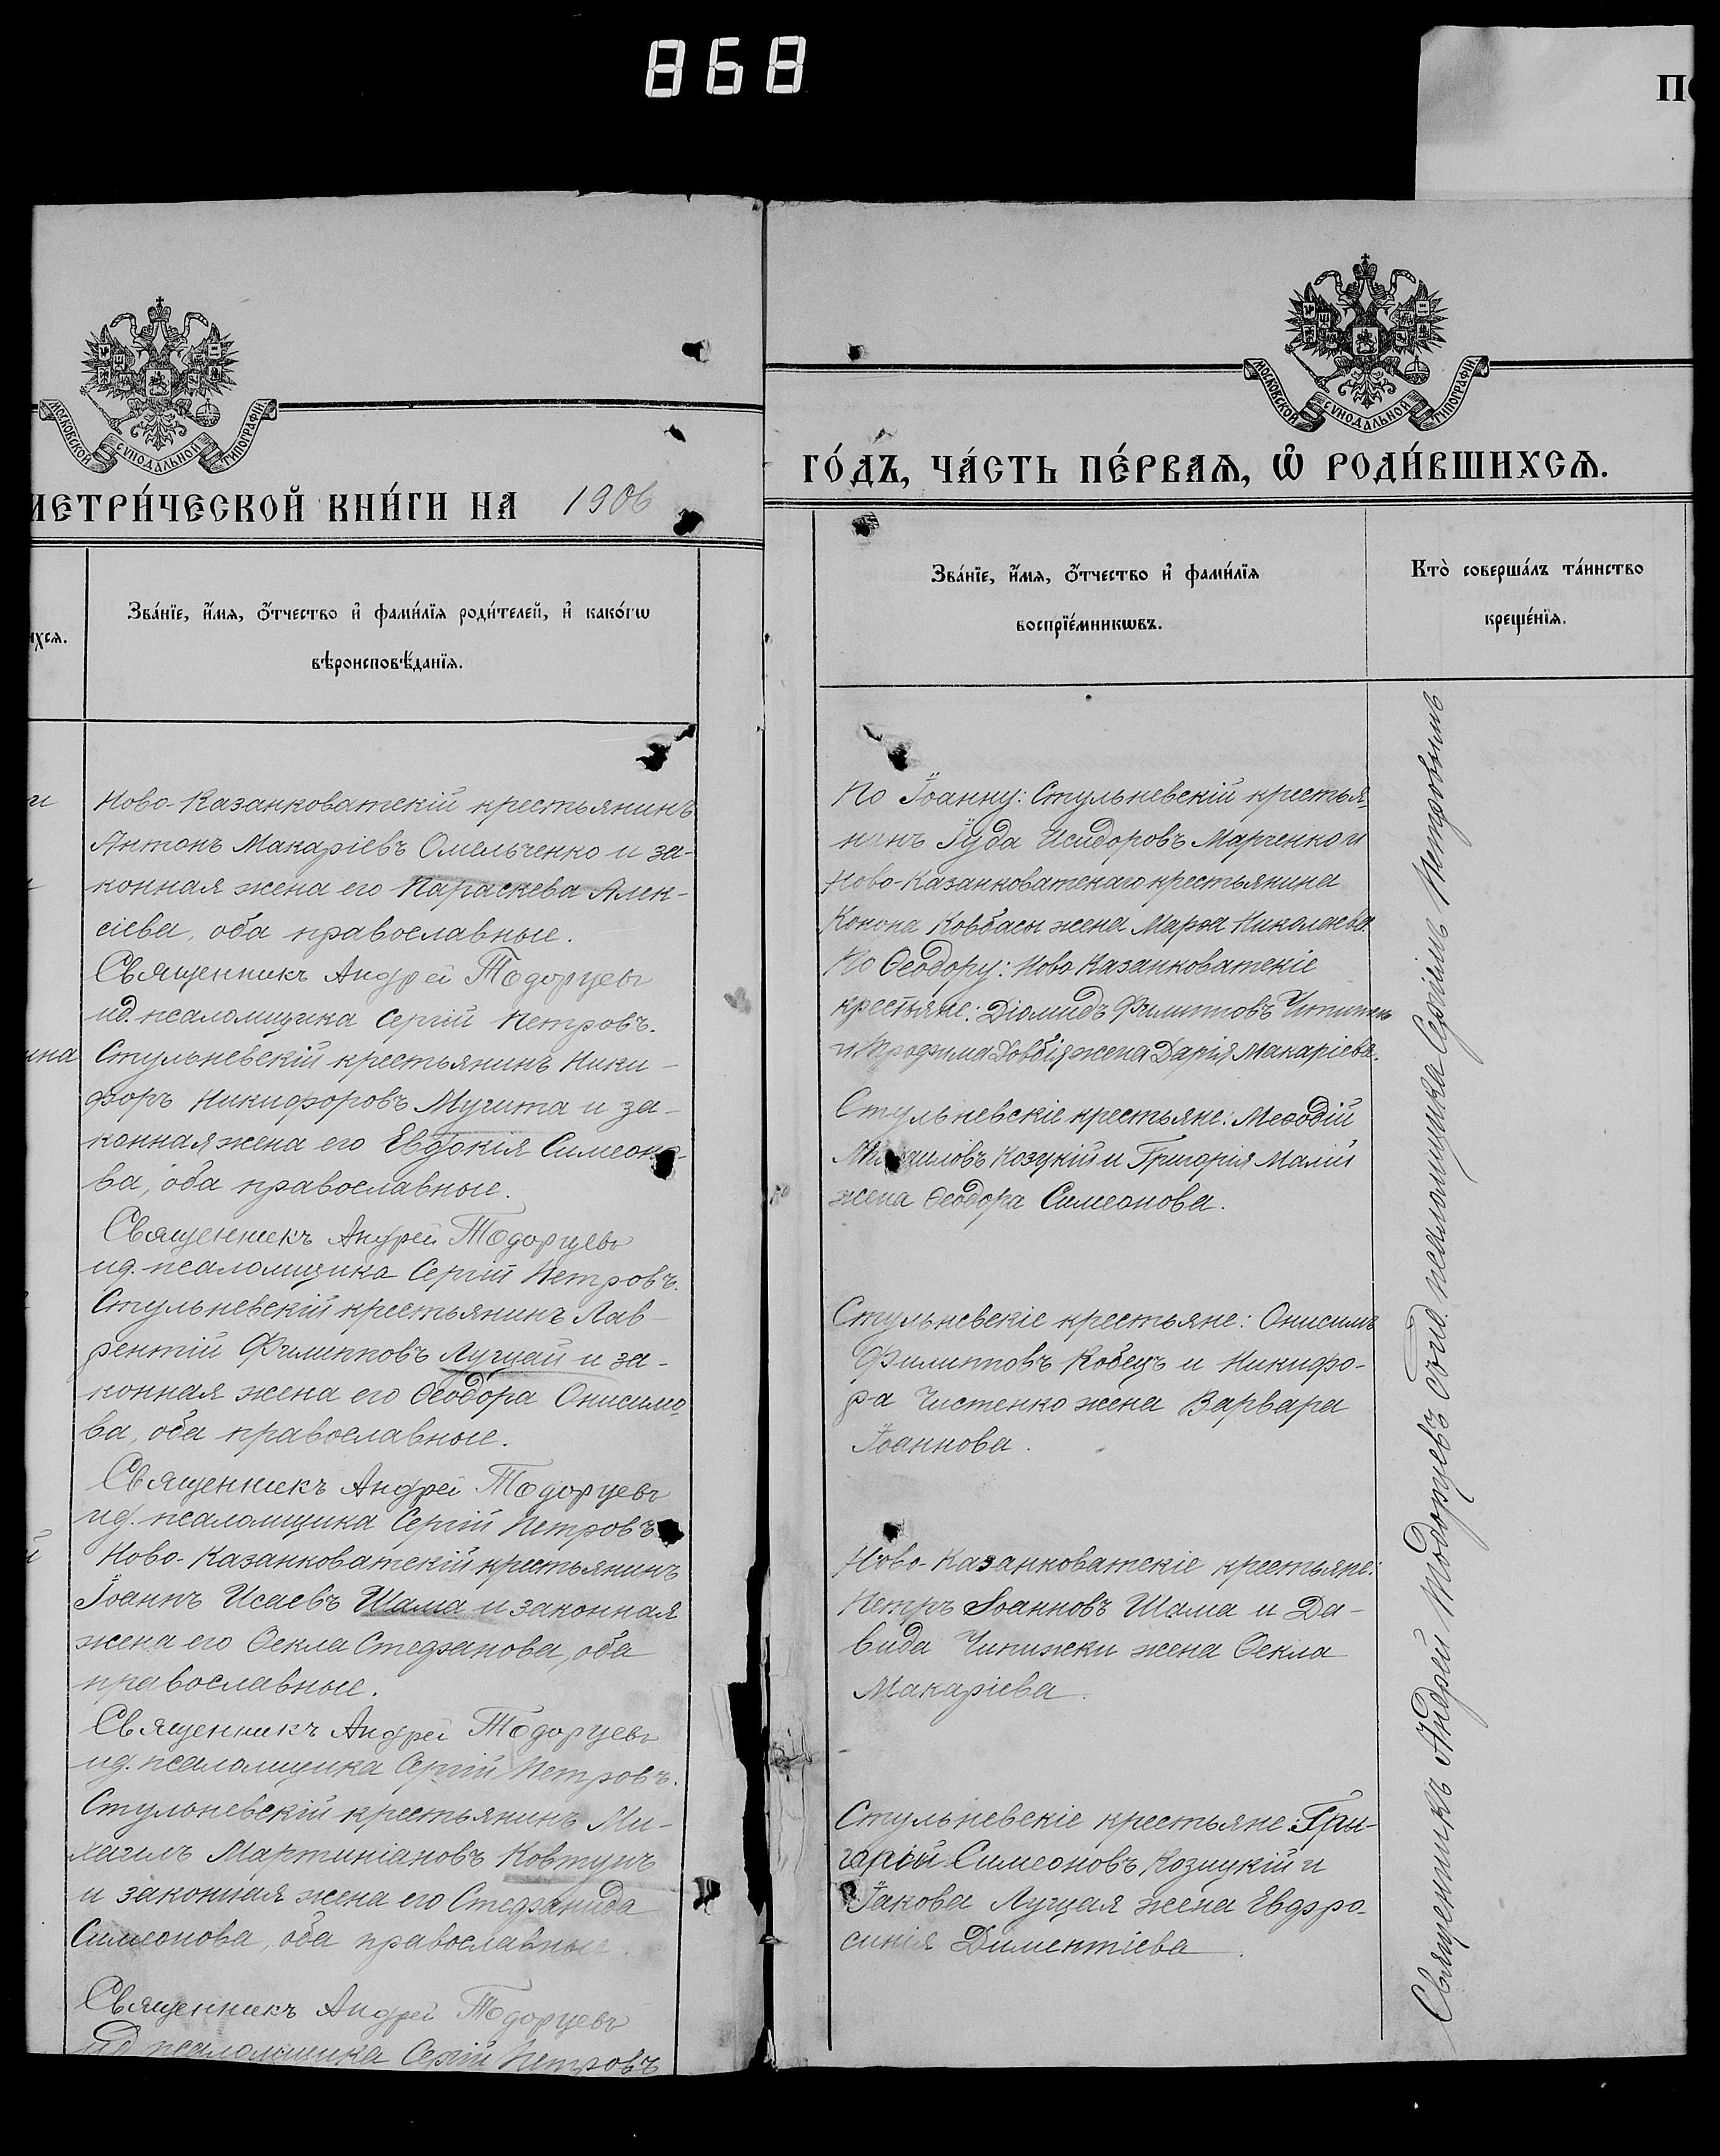 868
П
МОСКОВСКОЙ СѴНОДАЛЬНОЙ ТИПОГРАФІИ
МЕТРИ́ЧЕСКОЙ КНИ́ГИ НА 1906
ихсѧ.
Зва́нїе, и҆́мѧ, ѻ҆́тчество и҆ фами́лїѧ роди́телей, и҆ како́гѡ
вѣроисповѣ́данїѧ.
Ново-Казанковатскій крестьянинъ
Антонъ Макаріевъ Омельченко и за-
конная жена его Параскева Алек-
сіева, оба православные.
Священникъ Андрей Тодорцевъ
ид. псаломщика Сергій Петровъ.
ина
Стульневскій крестьянинъ Ники-
форъ Никифоровъ Мучита и за-
конная жена его Евдокія Симеоно-
ва, оба православные.
Священникъ Андрей Тодорцевъ
ид. псаломщика Сергій Петровъ.
Стульневскій крестьянинъ Лав-
рентій Филипповъ Лущай и за-
конная жена его Ѳеодора Онисимо-
ва, оба православные.
Священникъ Андрей Тодорцевъ
ид. псаломщика Сергій Петровъ
й
Ново-Казанковатскій крестьянинъ
Іоаннъ Исаевъ Шама и законная
жена его Ѳекла Стефанова, оба
православные.
Священникъ Андрей Тодорцевъ
ид. псаломщика Сергій Петровъ.
Стульневскій крестьянинъ Ми-
хаилъ Мартиніановъ Ковтунъ
и законная жена его Стефанида
Симеонова, оба православные.
Священникъ Андрей Тодорцевъ
ид псаломщика Сергій Петровъ
МОСКОВСКОЙ СѴНОДАЛЬНОЙ ТИПОГРАФІИ
ГО́ДЪ, ЧА́СТЬ ПЕ́РВАѦ, Ѽ РОДИ́ВШИХСѦ.
Зва́нїе, и҆́мѧ, ѻ҆́тчество и҆ фами́лїѧ
воспрїе́мникѡвъ.
Кто̀ соверша́лъ та́инство
креще́нїѧ.
По Іоанну: Стульневскій крестья-
нинъ Іуда Исидоровъ Марченко и
Ново-Казанковатскаго крестьянина
Конона Ковбасы жена Марѳа Николаева.
По Ѳеодору: Ново Казанковатскіе
крестьяне: Діомидъ Филипповъ
и Трофима Довбія жена Дарія Макаріева.
Стульневскіе крестьяне: Меѳодій
Михаиловъ Козуцкій и Григорія Малій
жена Ѳеодора Симеонова.
Стульневскіе крестьяне: Онисимъ
Филипповъ Кобецъ и Никифо-
ра Чистенко жена Варвара
Іоаннова.
Ново-Казанковатскіе крестьяне:
Петръ Іоанновъ Шама и Да-
вида Чипижки жена Ѳекла
Макаріева.
Стульневскіе крестьяне: Гри-
горій Симеоновъ Козицкій и
Іакова Лущая жена Евфро-
синія Диментіева.
Священникъ Андрей Тодорцевъ съ ид. псаломщика Сергіемъ Петровымъ